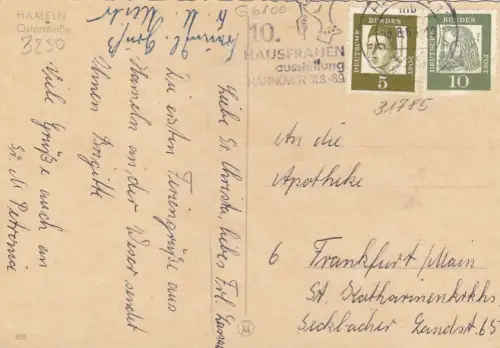 HAMELN
Osterstraße
3250
G6200
10.
HAUSFRAUEN
ausstellung
HANNOVER 31.8.-8.9.
DEUTSCHE BUNDES POST
5
DEUTSCHE BUNDES POST
10
31785
Liebe Sr. Christa, liebes Frl.
Die ersten Feriengrüße aus
Hameln an der Weser sendet
Ihnen Brigitte
Viele Grüße auch an
Sr. M. Petronia
An die
Apotheke
6 Frankfurt/Main
St. Katharinenkrkhs
Seckbacher Landstr. 65